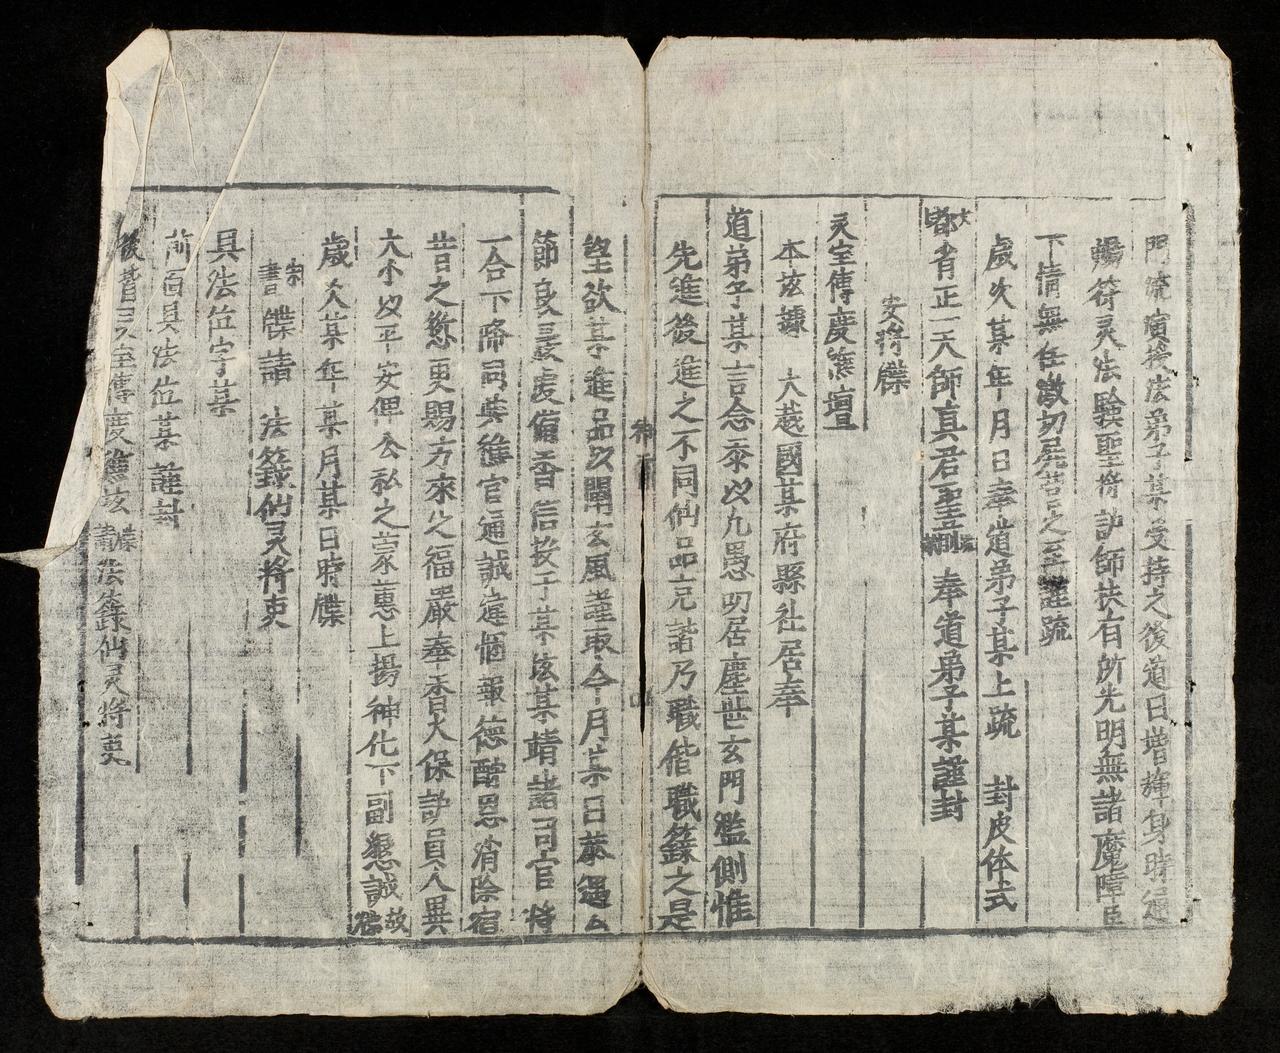 門流演教法弟子某受持之後道日增輝身時通
暢符灵法驗聖将护師扶有所光明無諸魔障臣
下情無任激切屏营之至謹疏
歲次某年月日奉道弟子某上疏 封皮体式
大都省正一天師真君聖前 奉道弟子某謹封
安将牒
灵宝傳度醮壇
本玆據 大越國某府縣社居奉
道弟子某言念汞以九愚叨居塵世玄門濫側惟
先進後進之不同仙品克諧乃職偹職籙之是
望欲某進品以闡玄風謹取今月某日恭遇么
節良晨虔備香信敦于某玆某請諸司官将
一合下降同奘進官通誠達悃報德酧恩消除宿
昔之愆更賜方來之福嚴奉香火保护員人異
大小以平安俾公私之蒙惠上揚神化下副懇誠故牒
歲次某年某月某日時牒
右書牒請 法籙仙灵将吏
具法位字某
前面具法位某謹封
後書灵宝傳度醮玆牒請法籙仙灵将吏